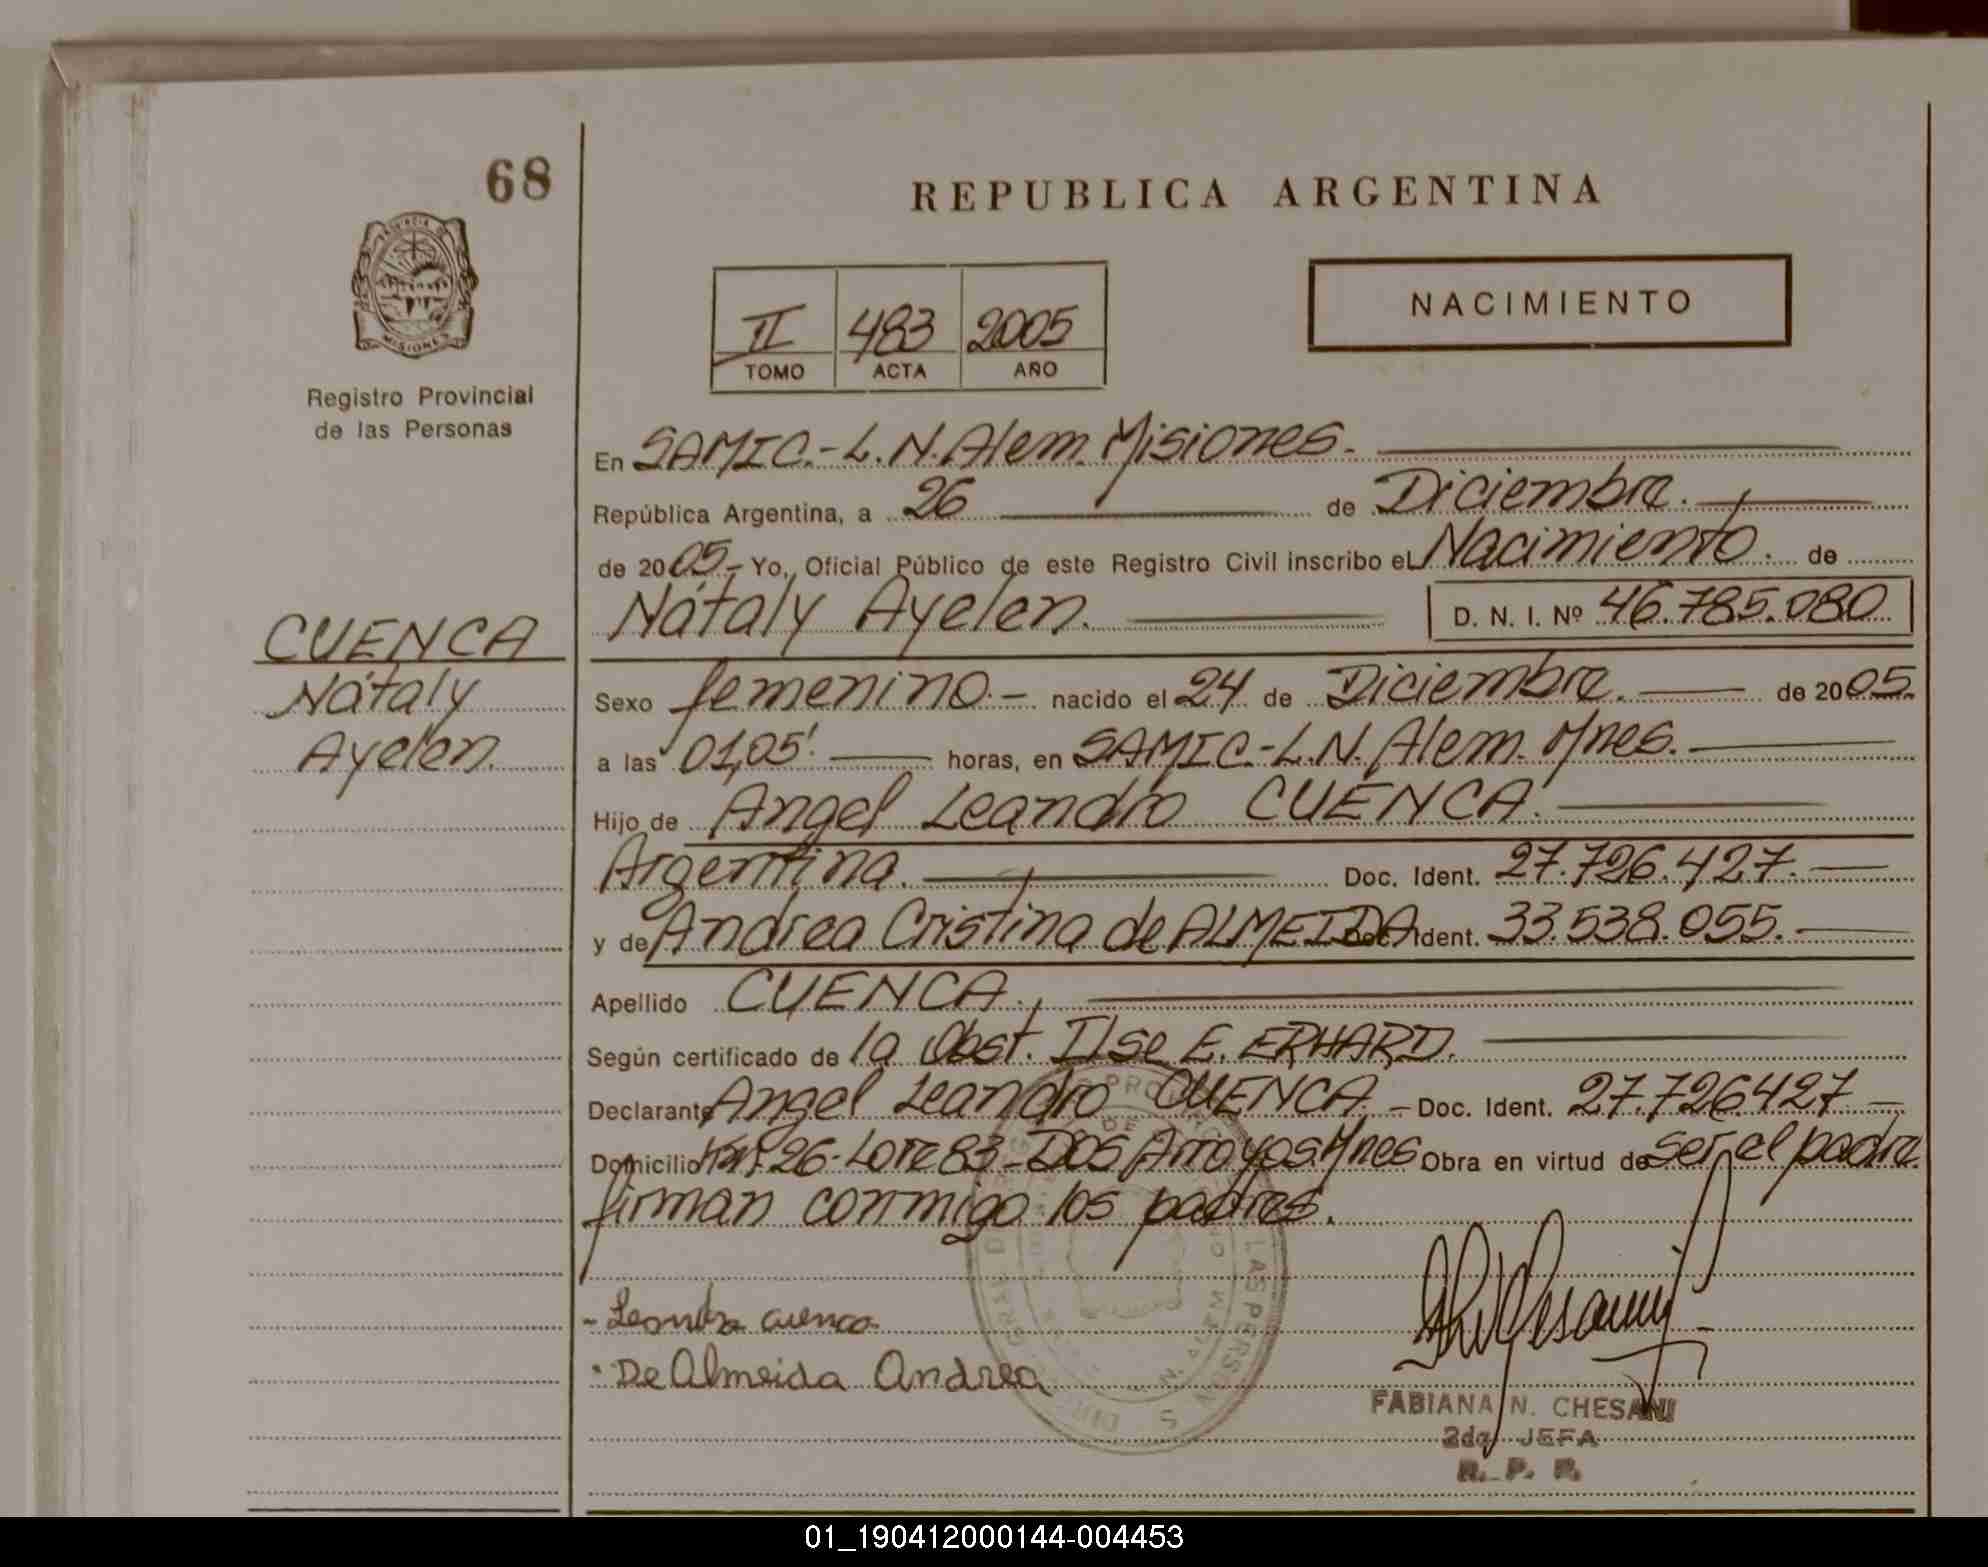 68
REPUBLICA ARGENTINA
PROVINCIA DE
MISIONES
Registro Provincial
de las Personas
II 483 2005
TOMO ACTA AÑO
NACIMIENTO
En SAMIC.-L.N.Alem.Misiones.-
República Argentina, a 26 de Diciembre.
de 2005.- Yo, Oficial Público de este Registro Civil inscribo el Nacimiento. de
Nátaly Ayelen. D. N. I. Nº 46.785.080
CUENCA
Nátaly
Ayelen.
Sexo femenino.- nacido el 24 de Diciembre. de 2005.
a las 01,05'. horas, en SAMIC.-L.N. Alem. Mnes.
Hijo de Angel Leandro CUENCA.
Argentina. Doc. Ident. 27.726.427.
y de Andrea Cristina de ALMEIDA Doc. Ident. 33.538.055.
Apellido CUENCA.,
Según certificado de la Obst. Ilse E. ERHARD.
Declarante Angel Leandro CUENCA.- Doc. Ident. 27.726427
Domicilio Km. 26-Lote 83-Dos Arroyos Mnes Obra en virtud de ser el padre.
firman conmigo los padres.
- Leandro cuenca
De Almeida Andrea
FABIANA N. CHESANI
2da JEFA
R. P. P.
01_190412000144-004453